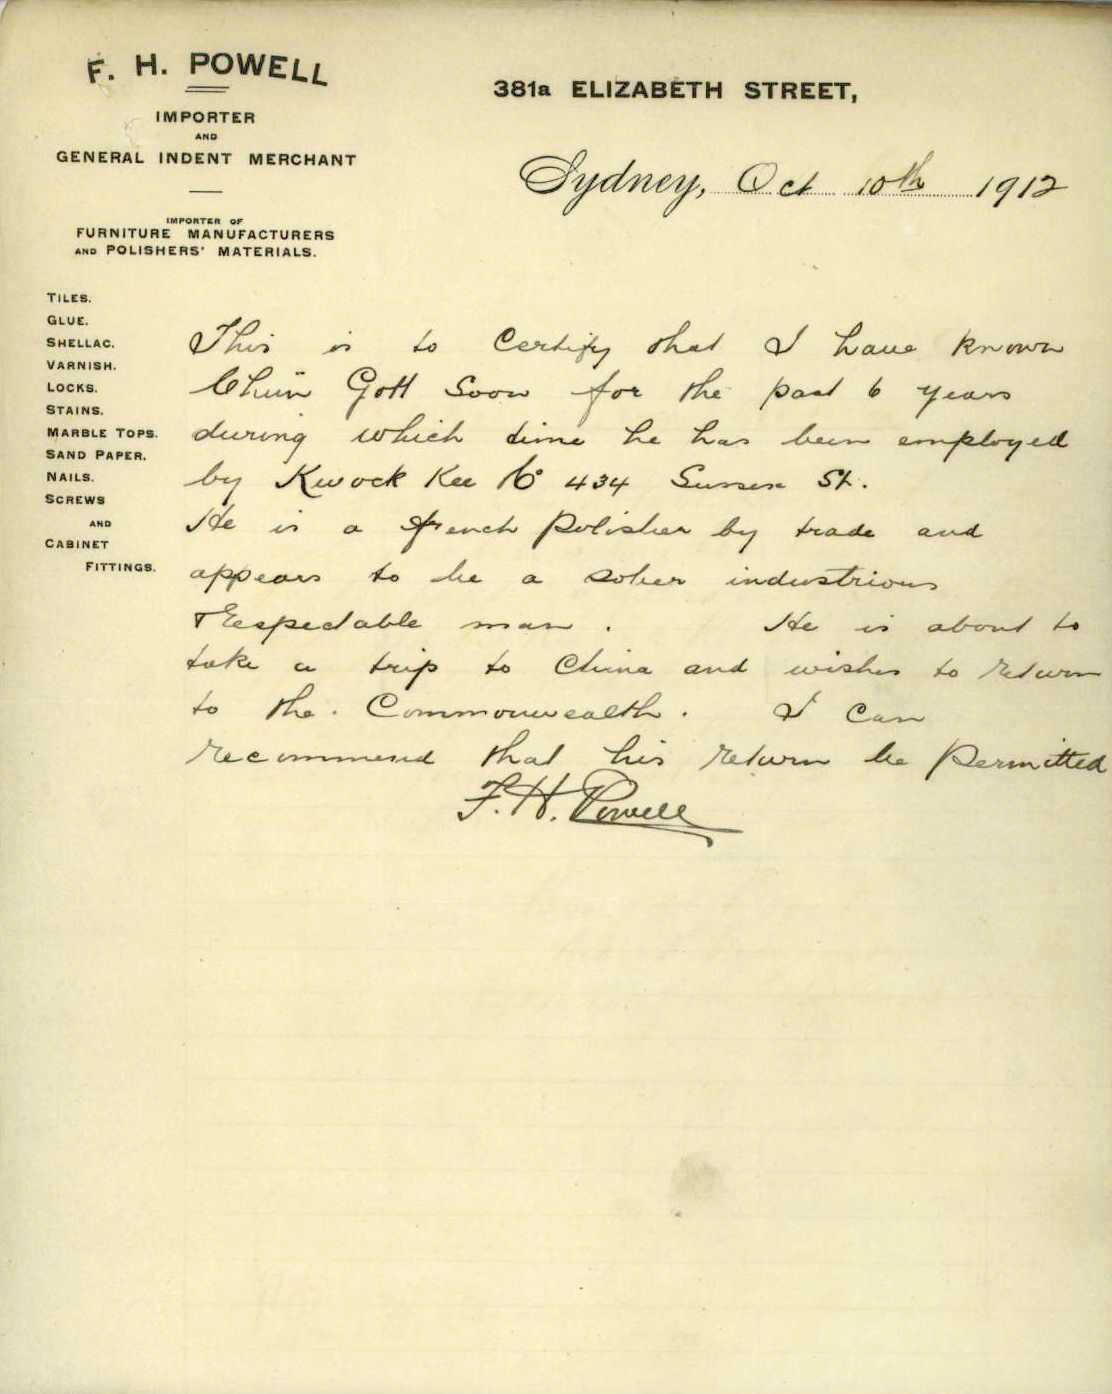 F. H. POWELL
IMPORTER
AND
GENERAL INDENT MERCHANT
IMPORTER OF
FURNITURE MANUFACTURERS
AND POLISHERS' MATERIALS.
381a ELIZABETH STREET,
Sydney, Oct 10th 1912
TILES.
GLUE.
SHELLAC.
VARNISH.
LOCKS.
STAINS.
MARBLE TOPS.
SAND PAPER.
NAILS.
SCREWS
AND
CABINET
FITTINGS.
This is to Certify that I have known
Chun Gott Soon for the past 6 years
during which time he has been employed
by Kwock Kee & Co 434 Sussex St.
He is a french polisher by trade and
appears to be a sober industrious
& respectable man. He is about to
take a trip to China and wishes to return
to the Commonwealth. I can
recommend that his return be permitted
F. H. Powell